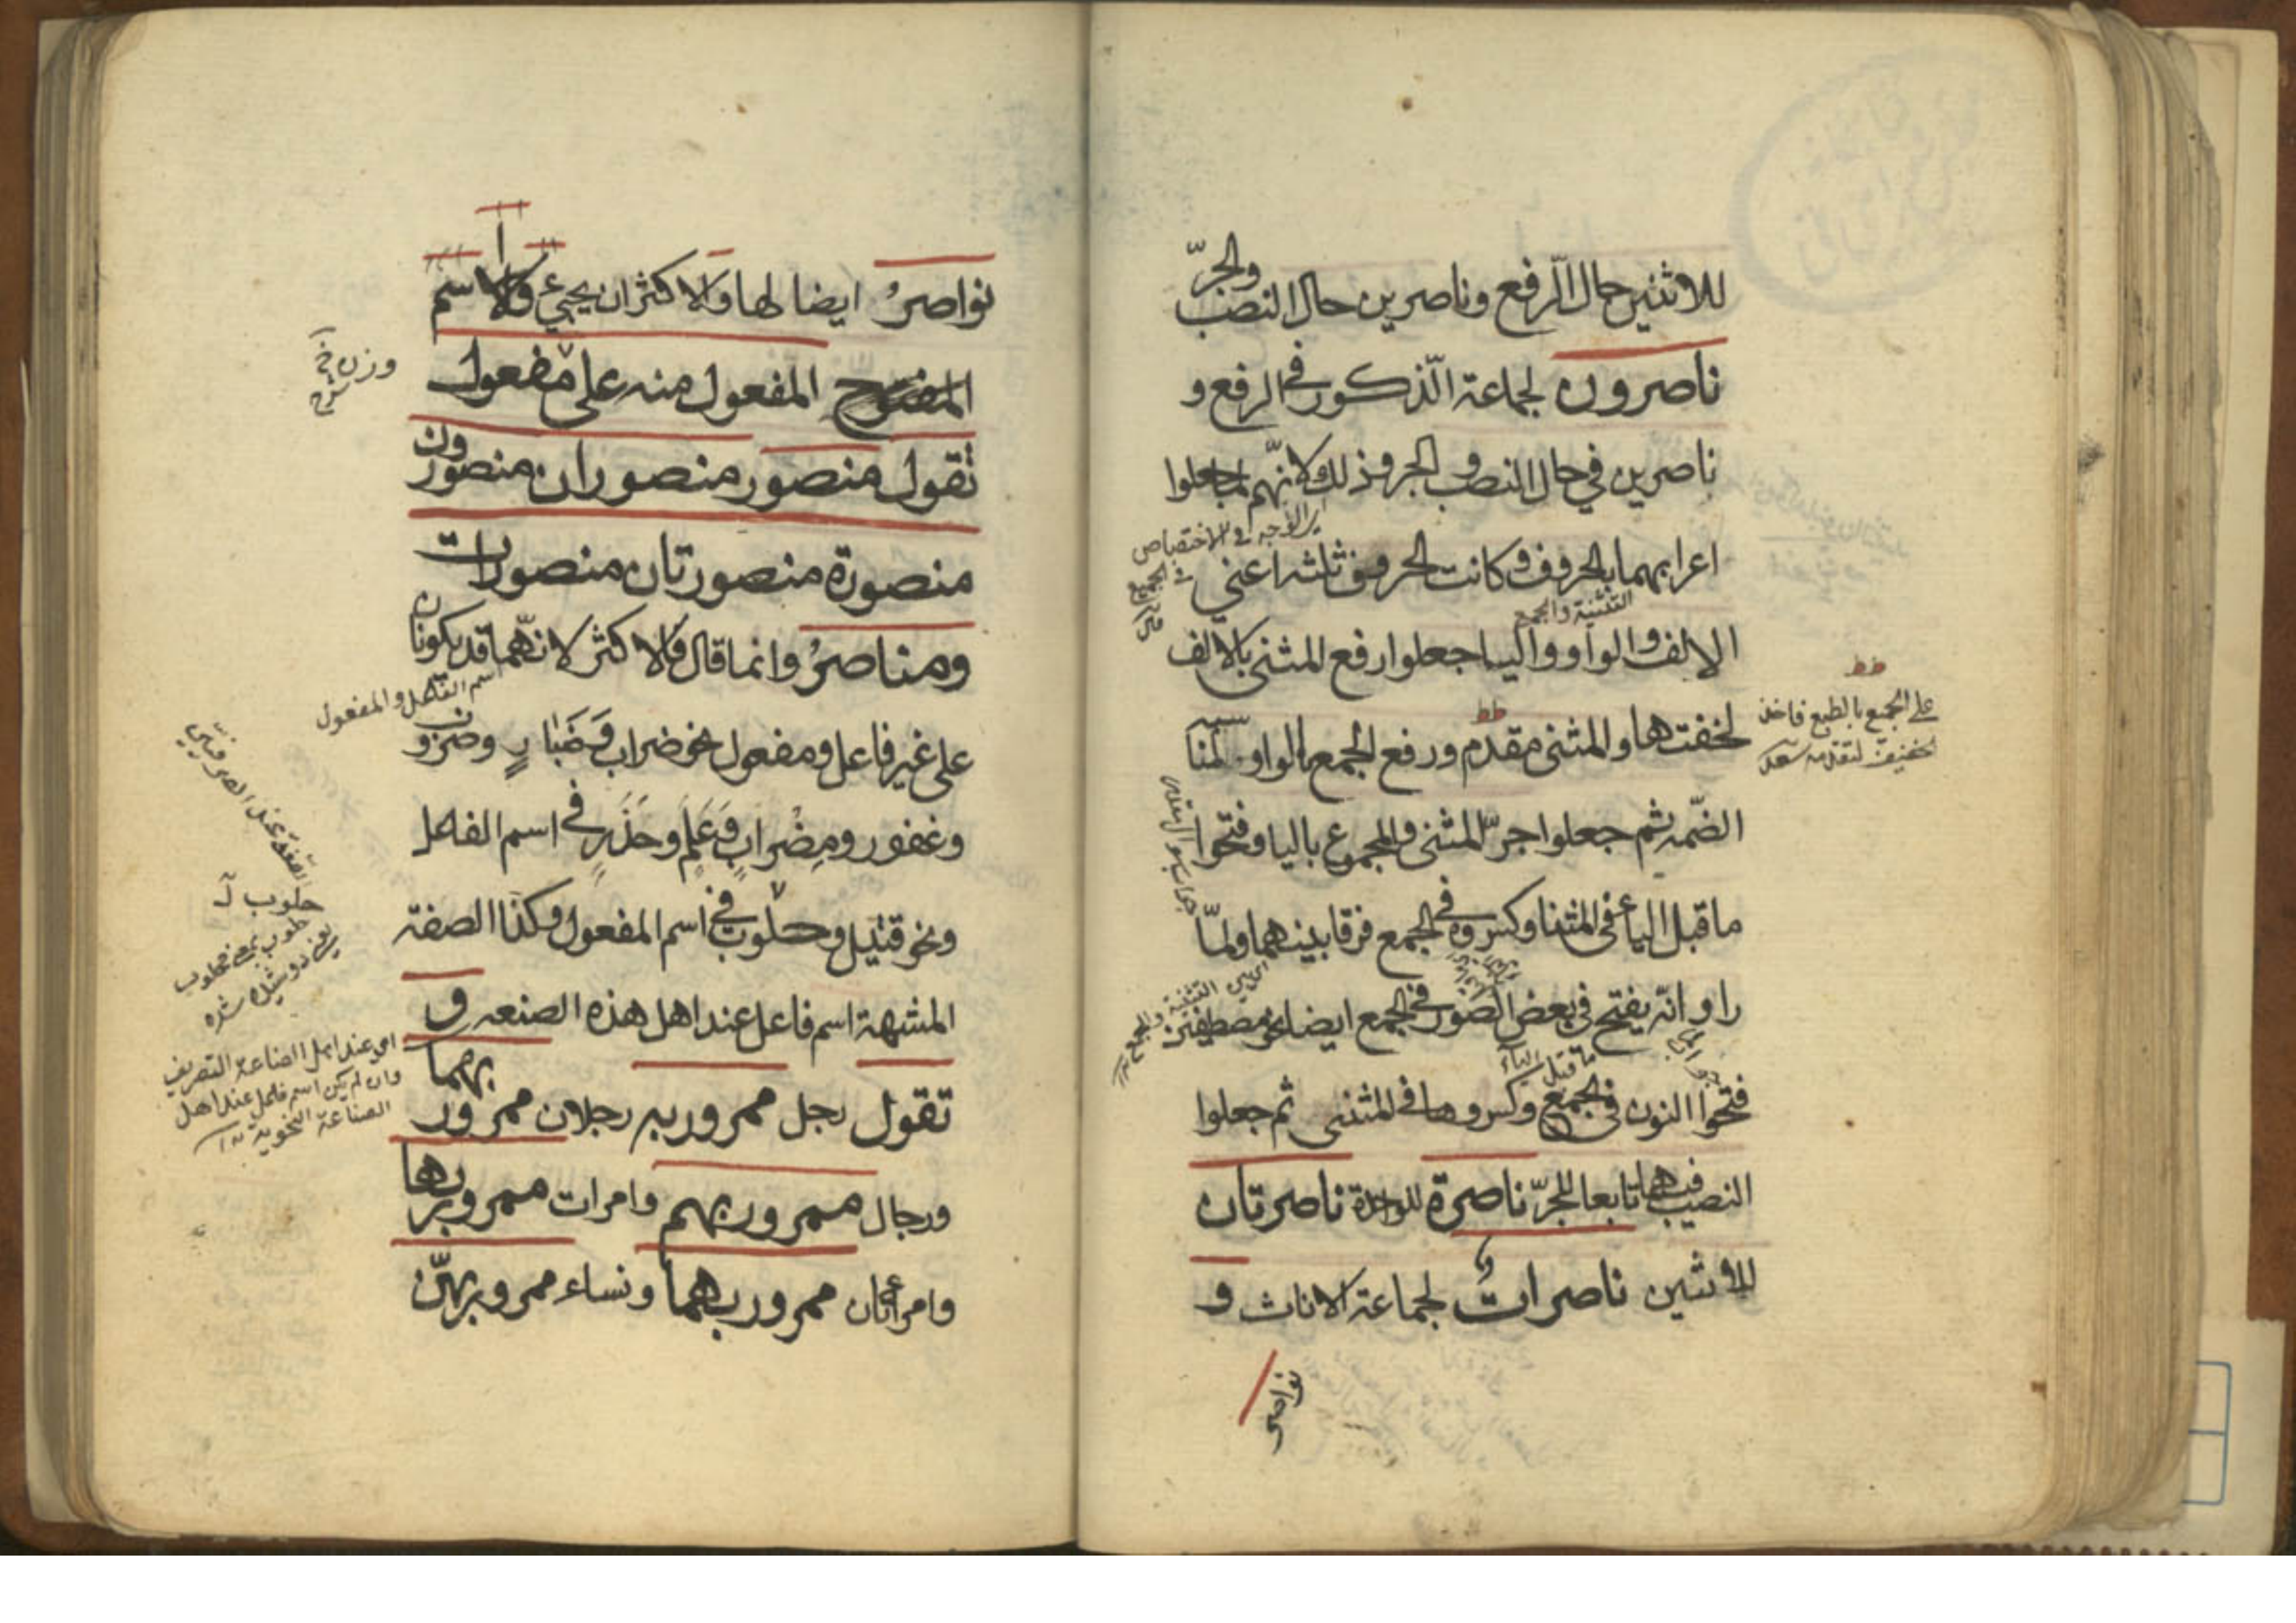 للاثنين حال الرّفع وناصرين حال النصب والجرّ
ناصرون لجماعة الذّكور في الرفع و
ناصرين في حال النصب والجر وذلك لانّهم لما جعلوا
اعرابهما بالحروف وكانت الحروف ثلثة اعني
الالف والواو واليا جعلوا رفع المثنى بالالف
لخفتها والمثنى مقدم ورفع الجمع بالواو لمنا سبة
الضّمة ثم جعلوا جرّ المثنى والمجموع باليا وفتحوا
ما قبل الياء في المثنا وكسروه في الجمع فرقا بينهما ولمّا
راو انّه يفتح في بعض الصّور في الجمع ايضا نحو مصطفين
فتحوا النون في الجمع وكسروها في المثنى ثم جعلوا
النصب فيهما تابعا للجرّ ناصرة للواحدة ناصرتان
للاثنين ناصرات لجماعة الاناث و
نواصر
على الجمع بالطبع فاخذ
لخفيف لتقدمه سعد
التثنية والجمع
ما قبل الياء
نواصرُ ايضا لها والاكثر ان يجيء والاسم
المفتوح المفعول منه على مفعول
تقول منصور منصوران منصورون
منصورة منصورتان منصورات
ومناصرُ وانما قال والاكثر لانّهما قد يكونان
على غير فاعل ومفعول نحو ضراب وضروب
وغفور ومِضْراب وعَلِم وحَذِر في اسم الفاعل
ونحو قتيل وحلوب في اسم المفعول وكذا الصفة
المشبهة اسم فاعل عند اهل هذه الصنعه و
تقول رجل ممرور به رجلان ممرور بهما
ورجال ممرور بهم وامرات ممرور بها
وامرأتان ممرور بهما ونساء ممرور بهنّ
وزن خ
شرح
اسم الفاعل والمفعول
حلوب
حلوب بمعنى محلوب
يعني دوشيده شده
اي عند اهل الصناعة التصريف
وان لم يكن اسم فاعل عند اهل
الصناعة النحوية